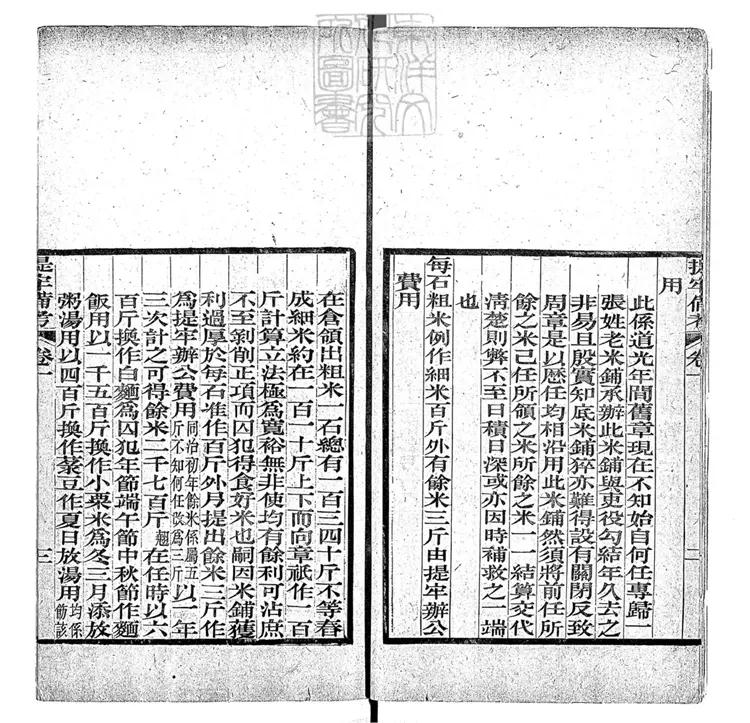 提牢備考 卷一 二
用
此係道光年間舊章現在不知始自何任專歸一
張姓老米鋪承辦此米鋪與吏役勾結年久去之
非易且殷實知底米鋪猝亦難得設有關閉反致
周章是以歷任均相沿用此米鋪然須將前任所
餘之米己任所領之米所餘之米一一結算交代
清楚則弊不至日積日深或亦因時補救之一端
也
每石粗米例作細米百斤外有餘米三斤由提牢辦公
費用
在倉領出粗米一石總有一百三四十斤不等舂
成細米約在一百一十斤上下而向章祇作一百
斤計算立法極為寬裕無非使均有餘利可沾庶
不至剝削正項而囚犯得食好米也嗣因米鋪獲
利過厚於每石准作百斤外月提出餘米三斤作
為提牢辦公費用同治初年餘米係屬五斤不知何任改為三斤以一年
三次計之可得餘米二千七百斤翹在任時以六
百斤換作白麵為囚犯年節端午節中秋節作麵
飯用以一千五百斤換作小粟米為冬三月添放
粥湯用以四百斤換作菉豆作夏日放湯用均係飭該
提牢備考 卷一 三
東洋文化研究所圖書